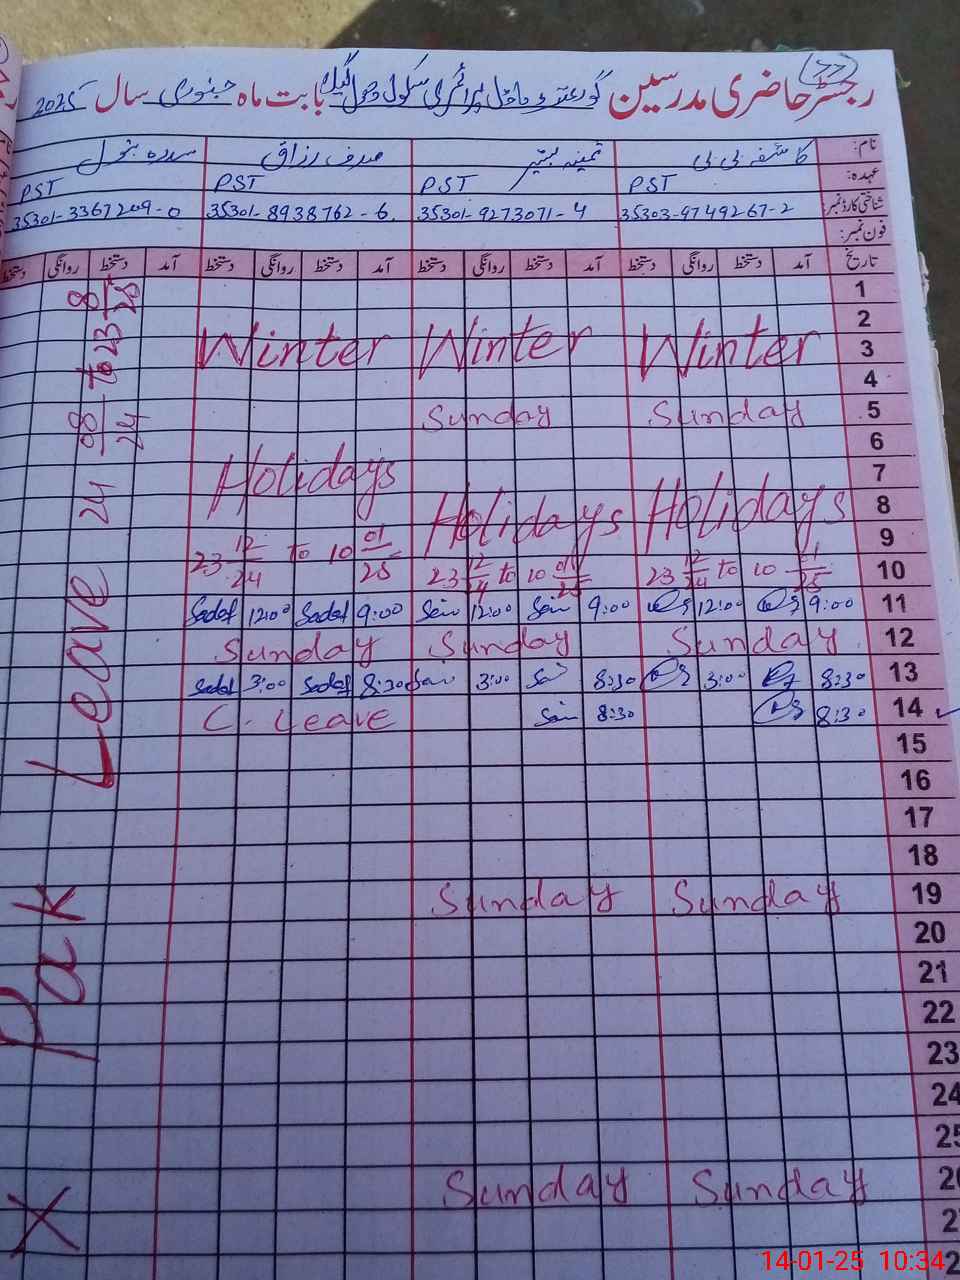 رجسٹر حاضری مدرسین گورنمنٹ ماڈل پرائمری سکول بابت ماہ جنوری سال 2025
نام: کاشفہ بی بی ثمینہ بشیر صدف رزاق سدرہ
عہدہ: PST PST PST PST
شناختی کارڈ نمبر: 35303-9749267-2 35301-9273071-4 35301-8938762-6 35301-3367209-0
فون نمبر:
تاریخ آمد دستخط روانگی دستخط آمد دستخط روانگی دستخط آمد دستخط روانگی دستخط آمد دستخط روانگی دستخط
1
2
Winter Winter Winter 3
4
Sunday Sunday 5
6
Holidays 7
Holidays Holidays 8
23 12/24 to 10 01/25 9
23 12/24 to 10 01/25 23 12/24 to 10 01/25 10
Sadaf 12:00 Sadaf 9:00 12:00 9:00 12:00 9:00 11
Sunday Sunday Sunday 12
Sadaf 3:00 Sadaf 8:30 3:00 8:30 3:00 8:30 13
C. Leave 8:30 8:30 14
15
16
17
18
Sunday Sunday 19
20
21
22
23
24
25
Sunday Sunday 26
X Pak Leave 24
14-01-25 10:34